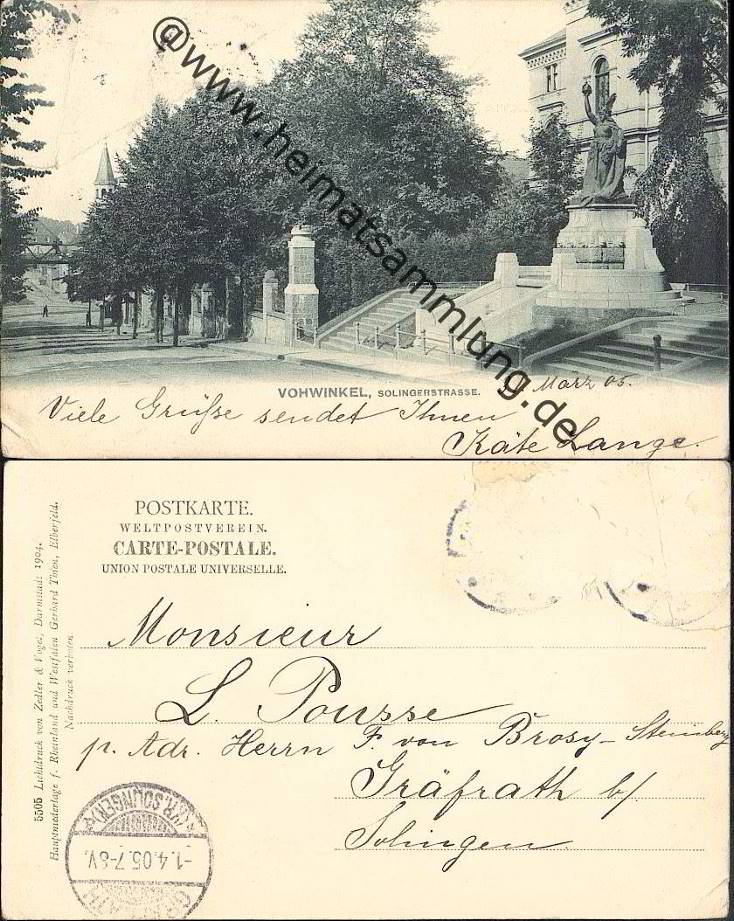 @www.heimatsammlung.de
VOHWINKEL, SOLINGERSTRASSE.
März 05.
Viele Grüße sendet Ihnen
Käte Lange.
POSTKARTE.
WELTPOSTVEREIN.
CARTE-POSTALE.
UNION POSTALE UNIVERSELLE.
5505 Lichtdruck von Zedler & Vogel, Darmstadt 1904.
Hauptniederlage f. Rheinland und Westfalen Gerhard Elberfeld.
Nachdruck verboten
Monsieur
L. Pousse
p. Adr. Herrn F. von Brosy-Steinberg
Gräfrath b/
Solingen.
(KR. SOLINGEN)
-1.4.05.7-8V.